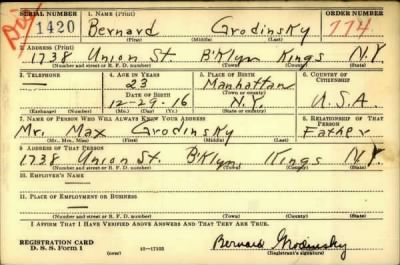 SERIAL NUMBER 1. NAME (Print) ORDER NUMBER
1420 Bernard Grodinsky 774
(First) (Middle) (Last)
2. ADDRESS (Print)
1738 Union St. B'Klyn Kings N.Y.
(Number and street or R. F. D. number) (Town) (County) (State)
3. TELEPHONE 4. AGE IN YEARS 5. PLACE OF BIRTH 6. COUNTRY OF CITIZENSHIP
— 23 Manhattan
DATE OF BIRTH (Town or county)
12-29-16 N.Y. U.S.A.
(Exchange) (Number) (Mo.) (Day) (Yr.) (State or country)
7. NAME OF PERSON WHO WILL ALWAYS KNOW YOUR ADDRESS 8. RELATIONSHIP OF THAT PERSON
Mr. Max Grodinsky Father
(Mr., Mrs., Miss) (First) (Middle) (Last)
9. ADDRESS OF THAT PERSON
1738 Union St. B'Klyn Kings N.Y.
(Number and street or R. F. D. number) (Town) (County) (State)
10. EMPLOYER'S NAME
—
11. PLACE OF EMPLOYMENT OR BUSINESS
—
(Number and street or R. F. D. number) (Town) (County) (State)
I AFFIRM THAT I HAVE VERIFIED ABOVE ANSWERS AND THAT THEY ARE TRUE.
REGISTRATION CARD
D. S. S. Form 1 (over) 16-17105 Bernard Grodinsky
(Registrant's signature)